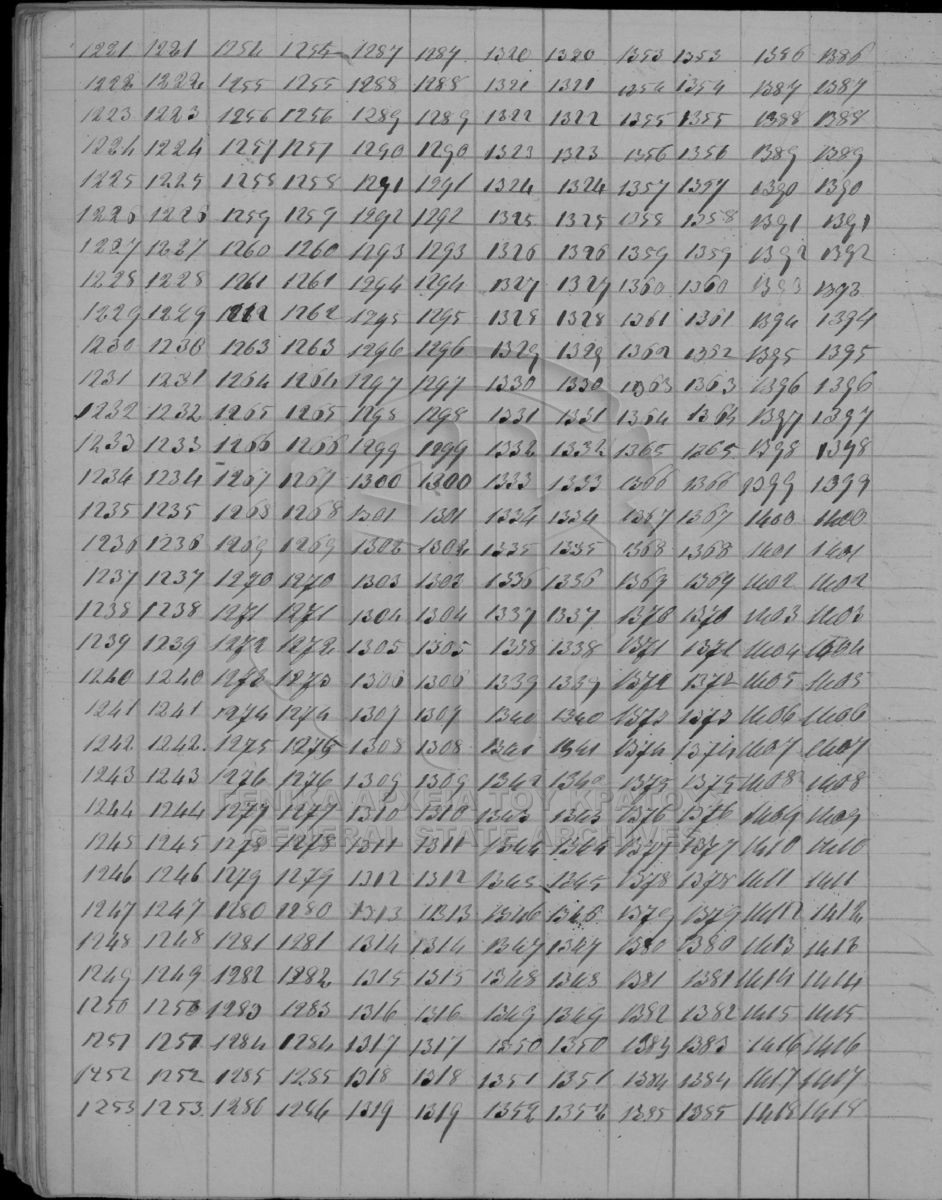 1221 1221 1254 1254 1287 1287 1320 1320 1353 1353 1386 1386
1222 1222 1255 1255 1288 1288 1321 1321 1354 1354 1387 1387
1223 1223 1256 1256 1289 1289 1322 1322 1355 1355 1388 1388
1224 1224 1257 1257 1290 1290 1323 1323 1356 1356 1389 1389
1225 1225 1258 1258 1291 1291 1324 1324 1357 1357 1390 1390
1226 1226 1259 1259 1292 1292 1325 1325 1358 1358 1391 1391
1227 1227 1260 1260 1293 1293 1326 1326 1359 1359 1392 1392
1228 1228 1261 1261 1294 1294 1327 1327 1360 1360 1393 1393
1229 1229 1262 1262 1295 1295 1328 1328 1361 1361 1394 1394
1230 1230 1263 1263 1296 1296 1329 1329 1362 1362 1395 1395
1231 1231 1264 1264 1297 1297 1330 1330 1363 1363 1396 1396
1232 1232 1265 1265 1298 1298 1331 1331 1364 1364 1397 1397
1233 1233 1266 1266 1299 1299 1332 1332 1365 1365 1398 1398
1234 1234 1267 1267 1300 1300 1333 1333 1366 1366 1399 1399
1235 1235 1268 1268 1301 1301 1334 1334 1367 1367 1400 1400
1236 1236 1269 1269 1302 1302 1335 1335 1368 1368 1401 1401
1237 1237 1270 1270 1303 1303 1336 1336 1369 1369 1402 1402
1238 1238 1271 1271 1304 1304 1337 1337 1370 1370 1403 1403
1239 1239 1272 1272 1305 1305 1338 1338 1371 1371 1404 1404
1240 1240 1273 1273 1306 1306 1339 1339 1372 1372 1405 1405
1241 1241 1274 1274 1307 1307 1340 1340 1373 1373 1406 1406
1242 1242 1275 1275 1308 1308 1341 1341 1374 1374 1407 1407
1243 1243 1276 1276 1309 1309 1342 1342 1375 1375 1408 1408
ΓΕΝΙΚΑ ΑΡΧΕΙΑ ΤΟΥ ΚΡΑΤΟΥΣ
1244 1244 1277 1277 1310 1310 1343 1343 1376 1376 1409 1409
GENERAL STATE ARCHIVES
1245 1245 1278 1278 1311 1311 1344 1344 1377 1377 1410 1410
1246 1246 1279 1279 1312 1312 1345 1345 1378 1378 1411 1411
1247 1247 1280 1280 1313 1313 1346 1346 1379 1379 1412 1412
1248 1248 1281 1281 1314 1314 1347 1347 1380 1380 1413 1413
1249 1249 1282 1282 1315 1315 1348 1348 1381 1381 1414 1414
1250 1250 1283 1283 1316 1316 1349 1349 1382 1382 1415 1415
1251 1251 1284 1284 1317 1317 1350 1350 1383 1383 1416 1416
1252 1252 1285 1285 1318 1318 1351 1351 1384 1384 1417 1417
1253 1253 1286 1286 1319 1319 1352 1352 1385 1385 1418 1418